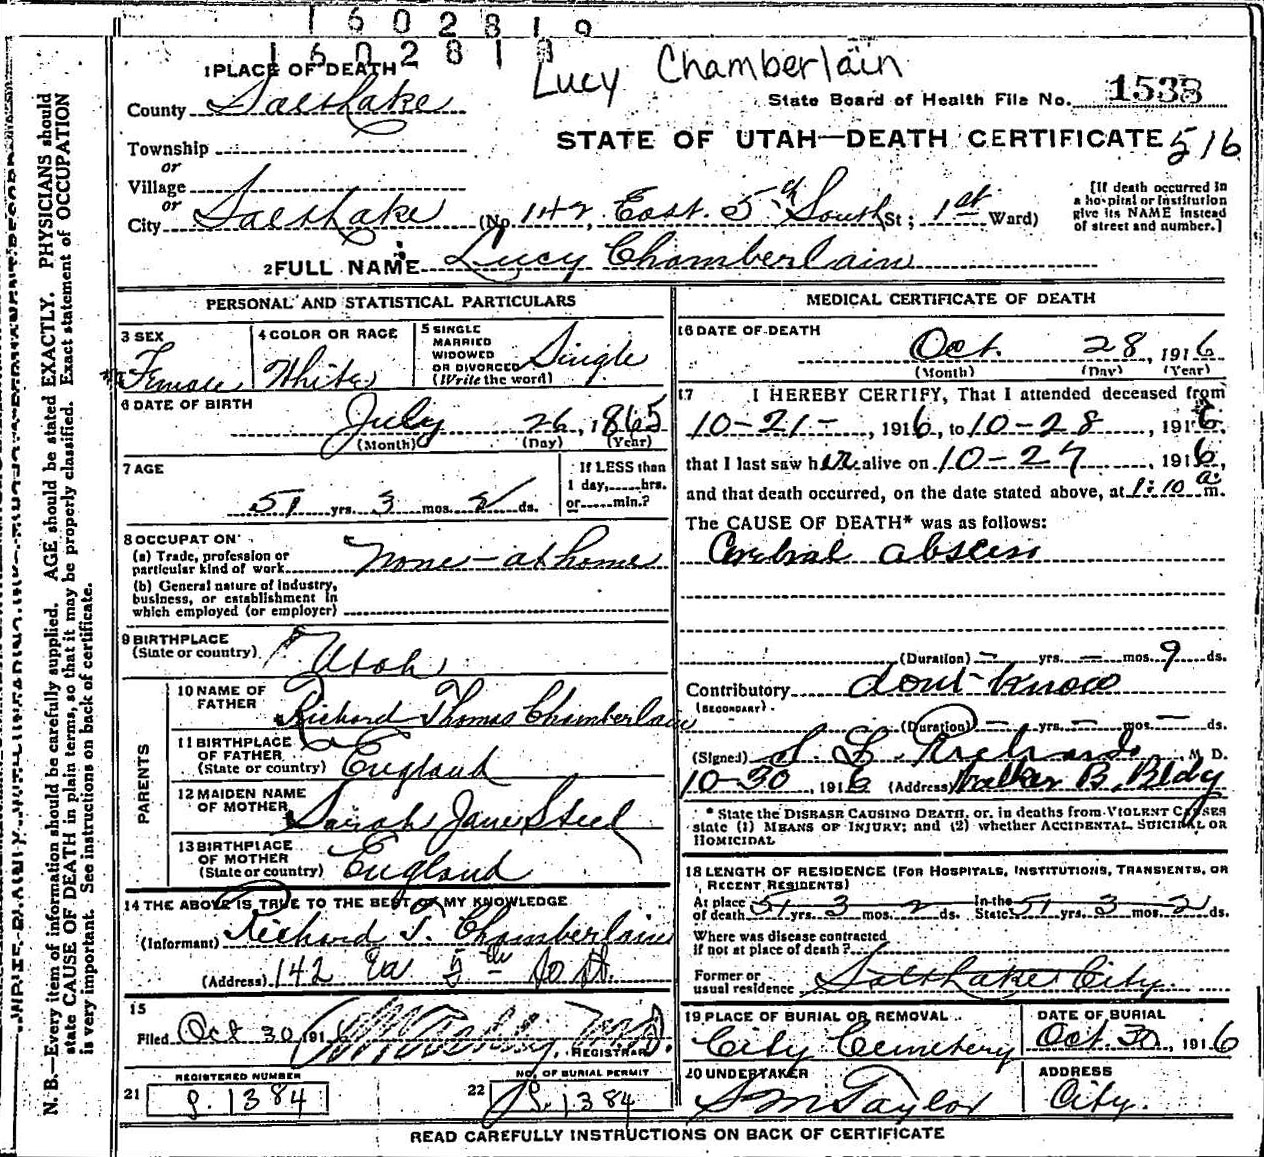 1602819
1602819
Lucy Chamberlain
1 PLACE OF DEATH
County Salt Lake
State Board of Health File No. 1533
STATE OF UTAH—DEATH CERTIFICATE 516
Township
or
Village
or
City Salt Lake (No. 142, East. 5th South St; 1st Ward)
[If death occurred in
a hospital or institution
give its NAME instead
of street and number.]
2 FULL NAME Lucy Chamberlain
PERSONAL AND STATISTICAL PARTICULARS
3 SEX
Female
4 COLOR OR RACE
White
5 SINGLE
MARRIED
WIDOWED
OR DIVORCED
(Write the word)
Single
6 DATE OF BIRTH
July 26, 1865
(Month) (Day) (Year)
7 AGE
51 yrs. 3 mos. 2 ds.
If LESS than
1 day,.....hrs.
or.....min.?
8 OCCUPATON
(a) Trade, profession or
particular kind of work
None - at home
(b) General nature of Industry,
business, or establishment in
which employed (or employer)
9 BIRTHPLACE
(State or country)
Utah
PARENTS
10 NAME OF
FATHER
Richard Thomas Chamberlain
11 BIRTHPLACE
OF FATHER
(State or country)
England
12 MAIDEN NAME
OF MOTHER
Sarah Jane Steel
13 BIRTHPLACE
OF MOTHER
(State or country)
England
14 THE ABOVE IS TRUE TO THE BEST OF MY KNOWLEDGE
(Informant) Richard T. Chamberlain
(Address) 142 Ea 5th So St.
15
Filed Oct 30 1916 M.D.
REGISTRAR
REGISTERED NUMBER
21 S. 1384
NO. OF BURIAL PERMIT
22 S. 1384
MEDICAL CERTIFICATE OF DEATH
16 DATE OF DEATH
Oct. 28, 1916
(Month) (Day) (Year)
17 I HEREBY CERTIFY, That I attended deceased from
10-21-, 1916, to 10-28, 1916,
that I last saw her alive on 10-27, 1916,
and that death occurred, on the date stated above, at 1:10 a.m.
The CAUSE OF DEATH* was as follows:
Cerebral abscess
(Duration) — yrs. — mos. 9 ds.
Contributory dont know
(SECONDARY)
(Duration) — yrs. — mos. — ds.
(Signed) Richards M. D.
10-30, 1916 (Address) Walker B. Bldg
* State the DISEASE CAUSING DEATH, or, in deaths from VIOLENT CAUSES
state (1) MEANS OF INJURY; and (2) whether ACCIDENTAL, SUICIDAL OR
HOMICIDAL
18 LENGTH OF RESIDENCE (FOR HOSPITALS, INSTITUTIONS, TRANSIENTS, OR
RECENT RESIDENTS)
At place
of death 51 yrs. 3 mos. 2 ds. In the State 51 yrs. 3 mos. 2 ds.
Where was disease contracted
if not at place of death?
Former or
usual residence Salt Lake City.
19 PLACE OF BURIAL OR REMOVAL
City Cemetery
DATE OF BURIAL
Oct. 30, 1916
20 UNDERTAKER
S M Taylor
ADDRESS
City.
READ CAREFULLY INSTRUCTIONS ON BACK OF CERTIFICATE
N. B.—Every item of information should be carefully supplied. AGE should be stated EXACTLY. PHYSICIANS should
state CAUSE OF DEATH in plain terms, so that it may be properly classified. Exact statement of OCCUPATION
is very important. See instructions on back of certificate.